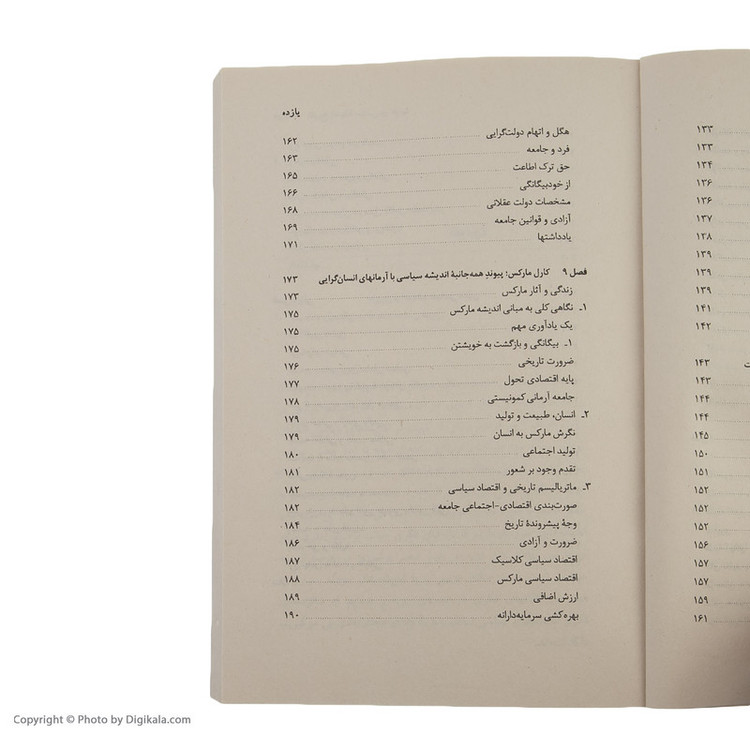 یازده
هگل و اتهام دولت‌گرایی ۱۶۲
فرد و جامعه ۱۶۳
حق ترک اطاعت ۱۶۵
از خودبیگانگی ۱۶۶
مشخصات دولت عقلائی ۱۶۸
آزادی و قوانین جامعه ۱۶۹
یادداشتها ۱۷۱
فصل ۹ کارل مارکس: پیوند همه‌جانبهٔ اندیشه سیاسی با آرمانهای انسان‌گرایی ۱۷۳
زندگی و آثار مارکس ۱۷۳
۱ـ نگاهی کلی به مبانی اندیشه مارکس ۱۷۵
یک یادآوری مهم ۱۷۵
۱ـ بیگانگی و بازگشت به خویشتن ۱۷۵
ضرورت تاریخی ۱۷۶
پایه اقتصادی تحول ۱۷۷
جامعه آرمانی کمونیستی ۱۷۸
۲ـ انسان، طبیعت و تولید ۱۷۹
نگرش مارکس به انسان ۱۷۹
تولید اجتماعی ۱۸۰
تقدم وجود بر شعور ۱۸۱
۳ـ ماتریالیسم تاریخی و اقتصاد سیاسی ۱۸۲
صورت‌بندی اقتصادی-اجتماعی جامعه ۱۸۲
وجهٔ پیشروندهٔ تاریخ ۱۸۴
ضرورت و آزادی ۱۸۶
اقتصاد سیاسی کلاسیک ۱۸۷
اقتصاد سیاسی مارکس ۱۸۸
ارزش اضافی ۱۸۹
بهره‌کشی سرمایه‌دارانه ۱۹۰
۱۳۳
۱۳۳
۱۳۴
۱۳۶
۱۳۶
۱۳۷
۱۳۸
۱۳۹
۱۳۹
۱۳۹
۱۴۱
۱۴۲
۱۴۳
۱۴۳
۱۴۴
۱۴۴
۱۴۵
۱۵۰
۱۵۱
۱۵۲
۱۵۲
۱۵۲
۱۵۶
۱۵۷
۱۵۷
۱۵۹
۱۶۱
Copyright © Photo by Digikala.com